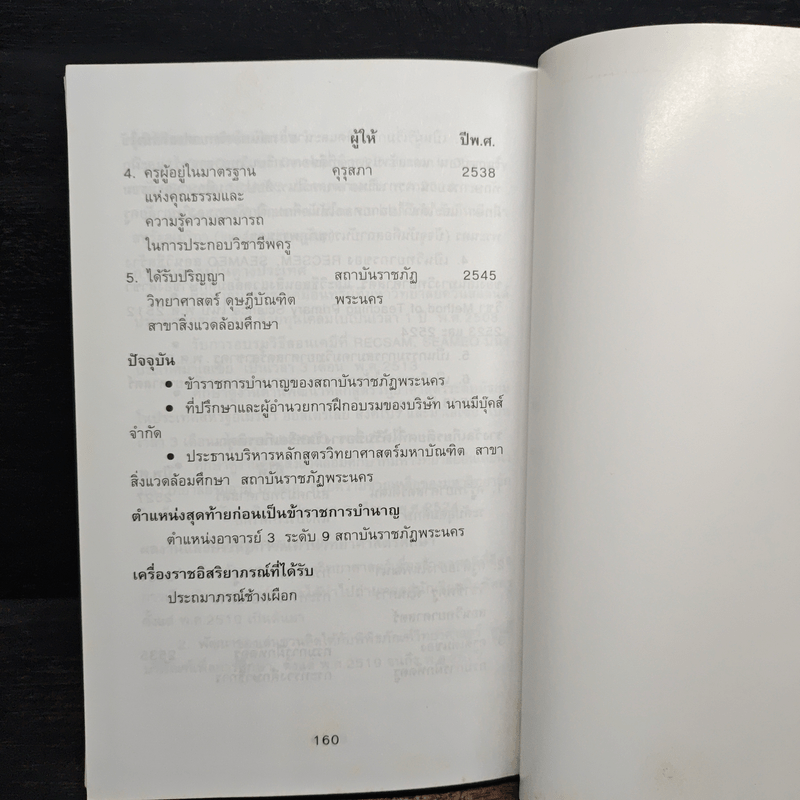 ผู้ให้ ปีพ.ศ.
4. ครูผู้อยู่ในมาตรฐาน คุรุสภา 2538
แห่งคุณธรรมและ
ความรู้ความสามารถ
ในการประกอบวิชาชีพครู
5. ได้รับปริญญา สถาบันราชภัฏ 2545
วิทยาศาสตร์ ดุษฎีบัณฑิต พระนคร
สาขาสิ่งแวดล้อมศึกษา
ปัจจุบัน
● ข้าราชการบำนาญของสถาบันราชภัฏพระนคร
● ที่ปรึกษาและผู้อำนวยการฝึกอบรมของบริษัท นานมีบุ๊คส์
จำกัด
● ประธานบริหารหลักสูตรวิทยาศาสตร์มหาบัณฑิต สาขา
สิ่งแวดล้อมศึกษา สถาบันราชภัฏพระนคร
ตำแหน่งสุดท้ายก่อนเป็นข้าราชการบำนาญ
ตำแหน่งอาจารย์ 3 ระดับ 9 สถาบันราชภัฏพระนคร
เครื่องราชอิสริยาภรณ์ที่ได้รับ
ประถมาภรณ์ช้างเผือก
160